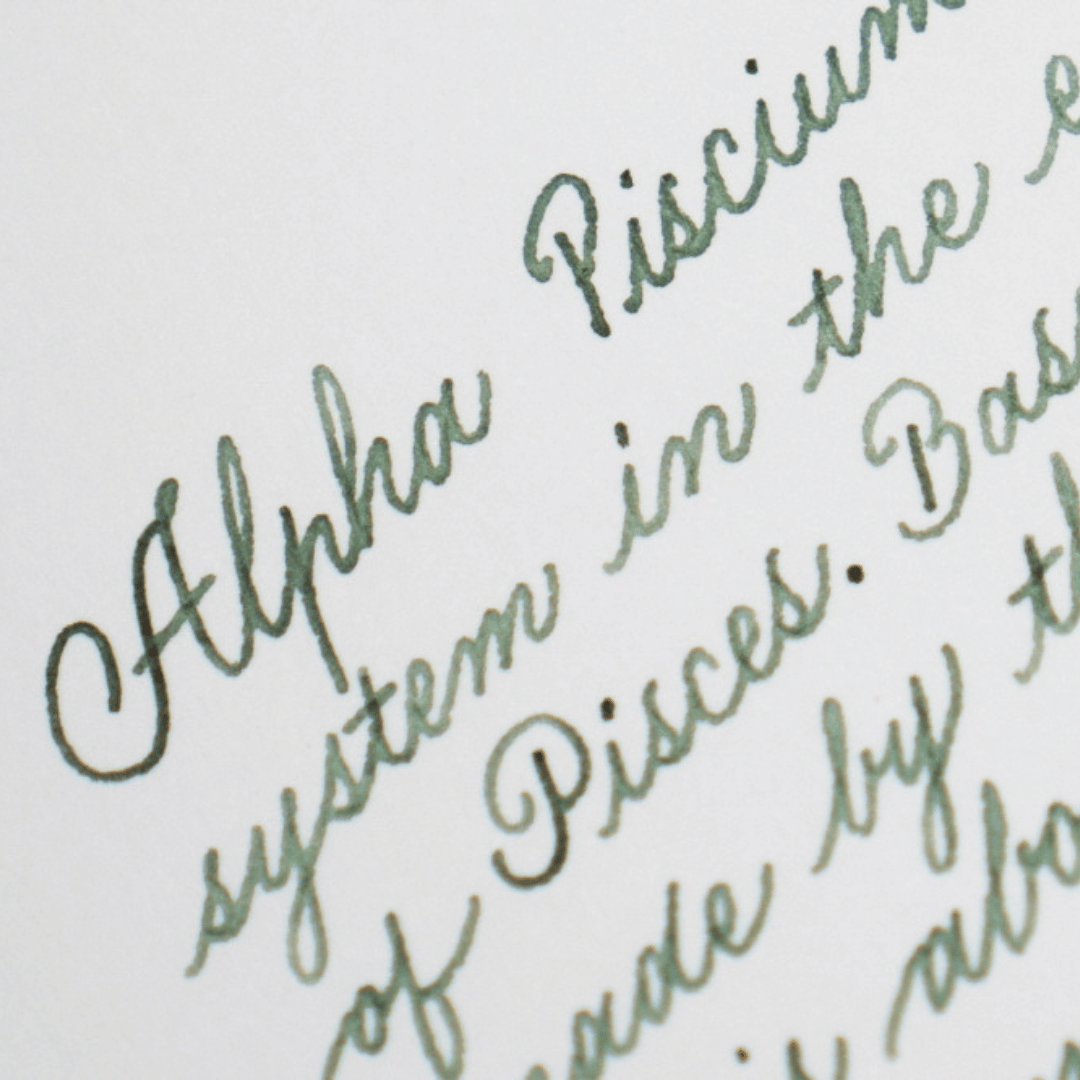 Alpha Piscium
system in the e
of Pisces. Bas
ade by th
is abo